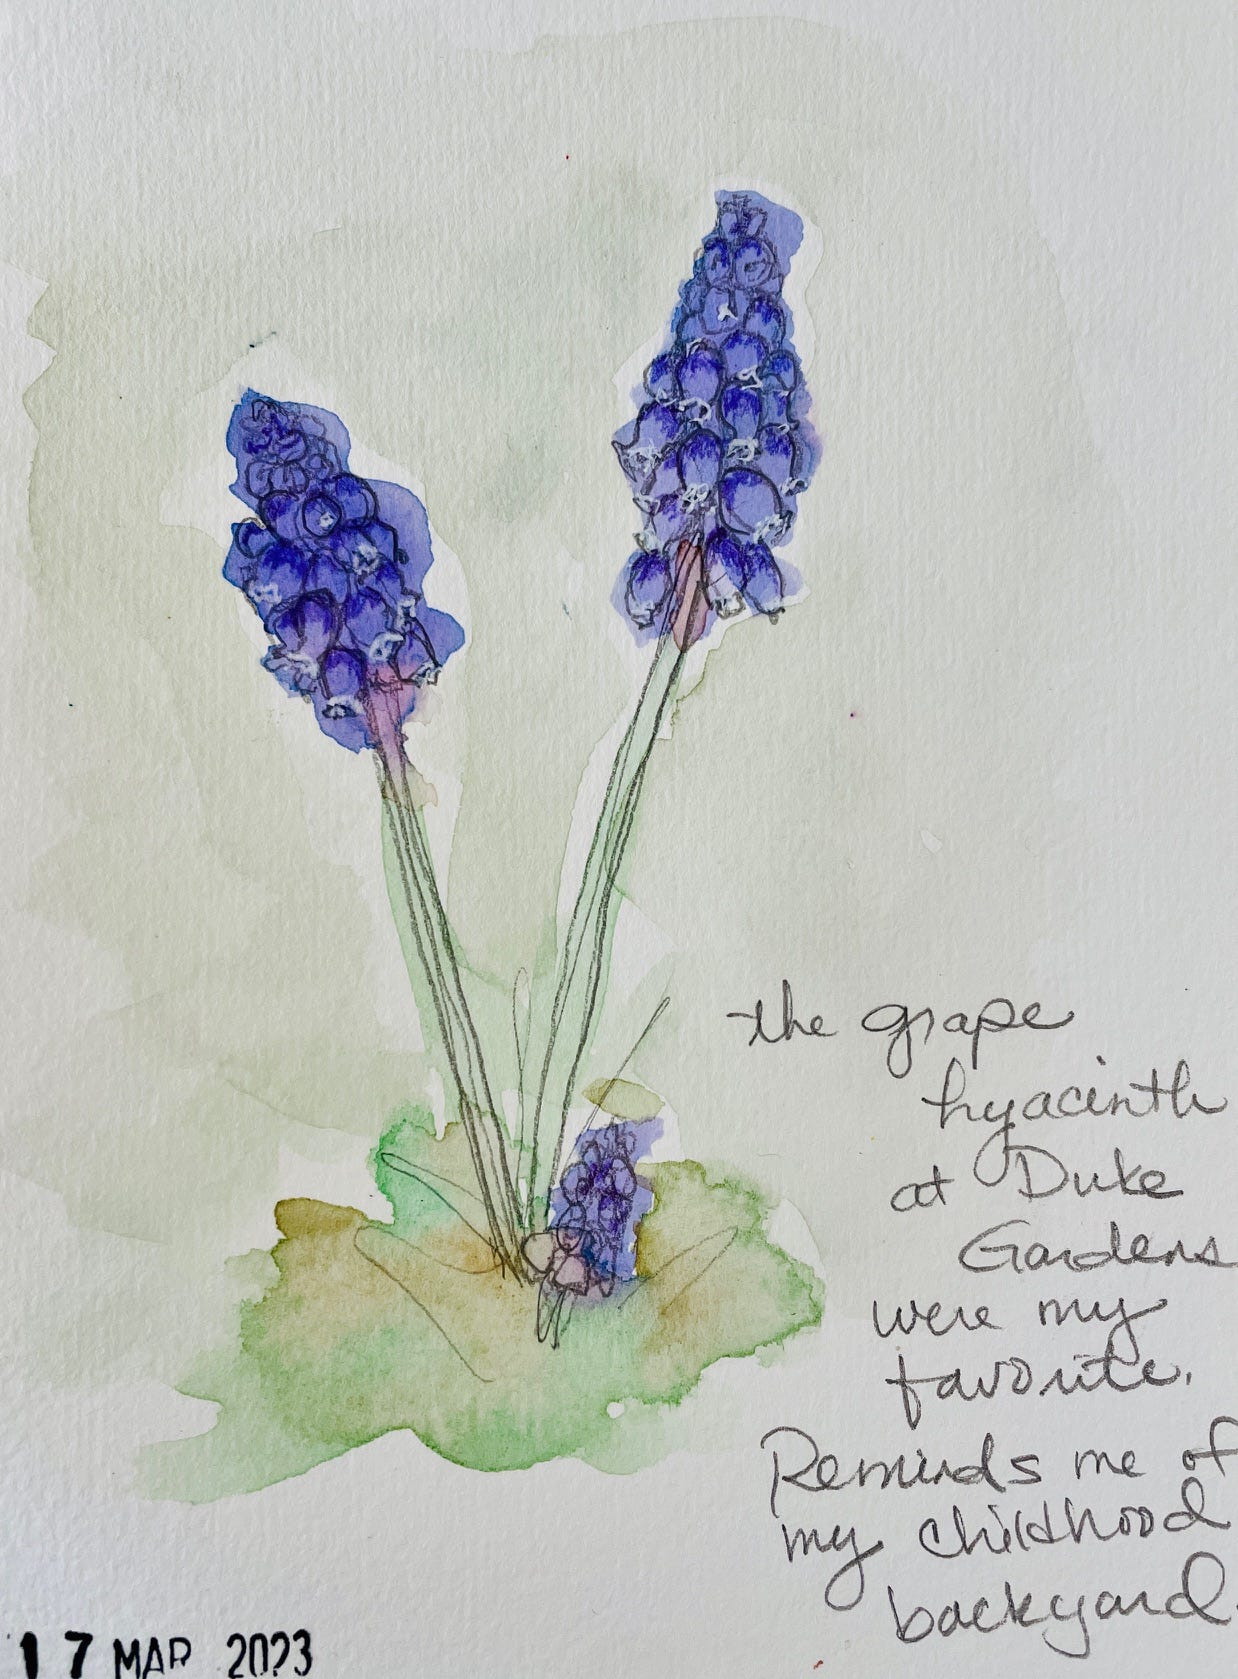 the grape
hyacinth
at Duke
Gardens
were my
favorite.
Reminds me of
my childhood
backyard.
17 MAR 2023